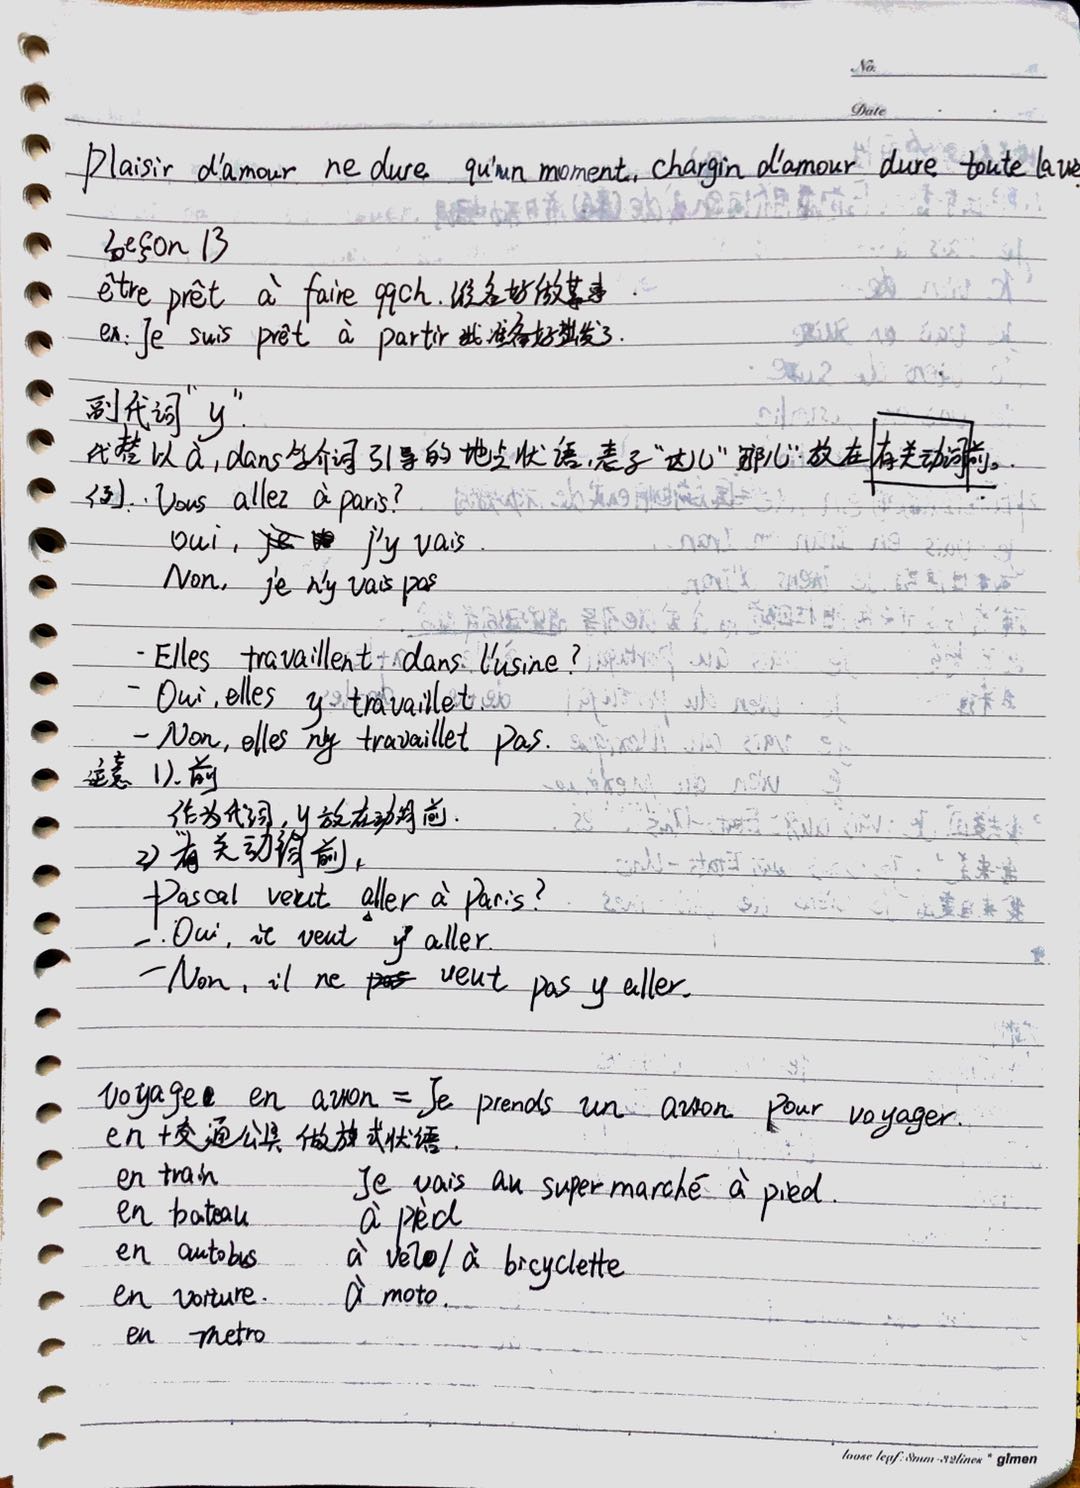 No.
Date
Plaisir d'amour ne dure qu'un moment, chargin d'amour dure toute la vie.
Leçon 13
être prêt à faire qqch. 准备好做某事.
ex: Je suis prêt à partir 我准备好出发了.
副代词"y".
代替以à, dans等介词引导的地点状语,表示"这儿""那儿".放在有关动词前。
例: Vous allez à paris?
Oui, j'y vais.
Non, je n'y vais pas
- Elles travaillent dans l'usine?
- Oui, elles y travaillet.
- Non, elles n'y travaillet pas.
注意 1).前
作为代词,y放在动词前.
2)有关动词前,
- Pascal veut aller à Paris?
- Oui, il veut y aller.
- Non, il ne veut pas y aller.
voyager en avion = Je prends un avion pour voyager.
en+交通公具 做放式状语.
en train Je vais au supermarché à pied.
en bateau à pied
en autobus à vélo/à bicyclette
en voiture. à moto.
en metro
loose leaf: 8mm·32lines * gimen